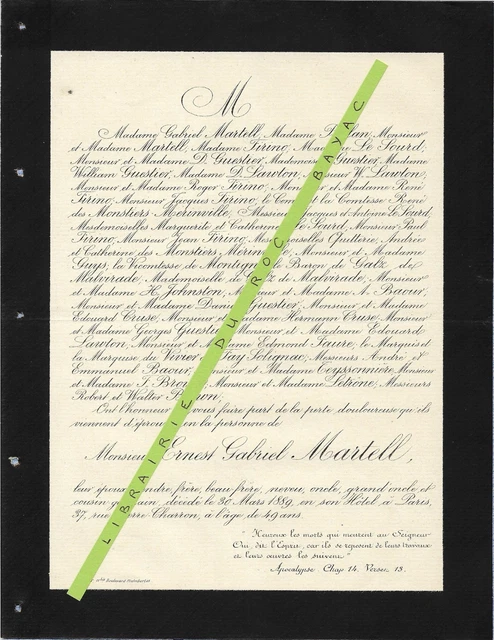 M
Madame Gabriel Martell, Madame Monsieur
et Madame Martell, Madame Firino, Le Sourd,
Monsieur et Madame D. Guestier, Guestier, Madame
William Guestier, Madame D. Lawton, W. Lawton,
Monsieur et Madame Roger Firino, et Madame René
Firino, Monsieur Jacques Firino, le et la Comtesse René
des Monstiers Mérinville, Messieurs Jacques et Antoine Le Sourd,
Mesdemoiselles Marguerite et Catherine Le Sourd, Monsieur Paul
Firino, Monsieur Jean Firino, Andrée
et Catherine des Monstiers Mérinville, Monsieur et Madame
Guys, la Vicomtesse de le Baron de Galz de
Malvirade, Mademoiselle de Malvirade, Monsieur
et Madame H. Johnston, et Madame A. Baour,
Monsieur et Madame Daniel Guestier, Monsieur et Madame
Edouard Cruse, Monsieur et Madame Hermann Cruse, Monsieur
et Madame Georges Guestier, Monsieur et Madame Edouard
Lawton, Monsieur et Madame Edmond Faure, le Marquis et
la Marquise du Vivier Fay Solignac, Messieurs André et
Emmanuel Baour, Monsieur et Madame Ceyssonnière, Monsieur
et Madame J. Monsieur et Madame Monsieurs
Robert et Walter
Ont l'honneur vous faire part de la perte douloureuse qu'ils
viennent d'éprouver en la personne de
Monsieur Ernest Gabriel Martell,
leur époux, gendre, frère, beau frère, neveu, oncle, grand oncle et
cousin décédé le 30 Mars 1889, en son Hôtel à Paris,
37, rue Pierre Charron, à l'âge de 49 ans.
Heureux les morts qui meurent au Seigneur
Oui, dit l'Esprit, car ils se reposent de leurs travaux
et leurs œuvres les suivent.
Apocalypse Chap. 14. Verset 13.
LIBRAIRIE DU ROC BAYAC